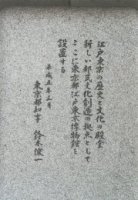 江戸東京の歴史と文化の殿堂
新しい都民文化創造の拠点として
ここに東京都江戸東京博物館を
設置する
平成五年三月
東京都知事 鈴木俊一